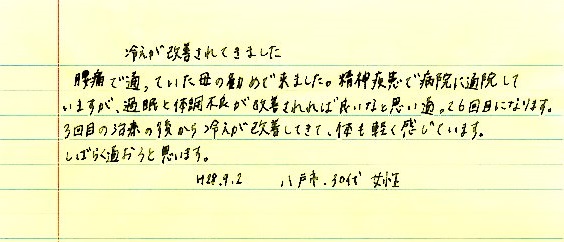 冷えが改善されてきました
腰痛で通っていた母の勧めで来ました。精神疾患で病院に通院して
いますが、過眠と体調不良が改善されれば良いなと思い通って6回目になります。
3回目の治療の後から冷えが改善してきて、体も軽く感じています。
しばらく通おうと思います。
H28.9.2 八戸市.30代 女性